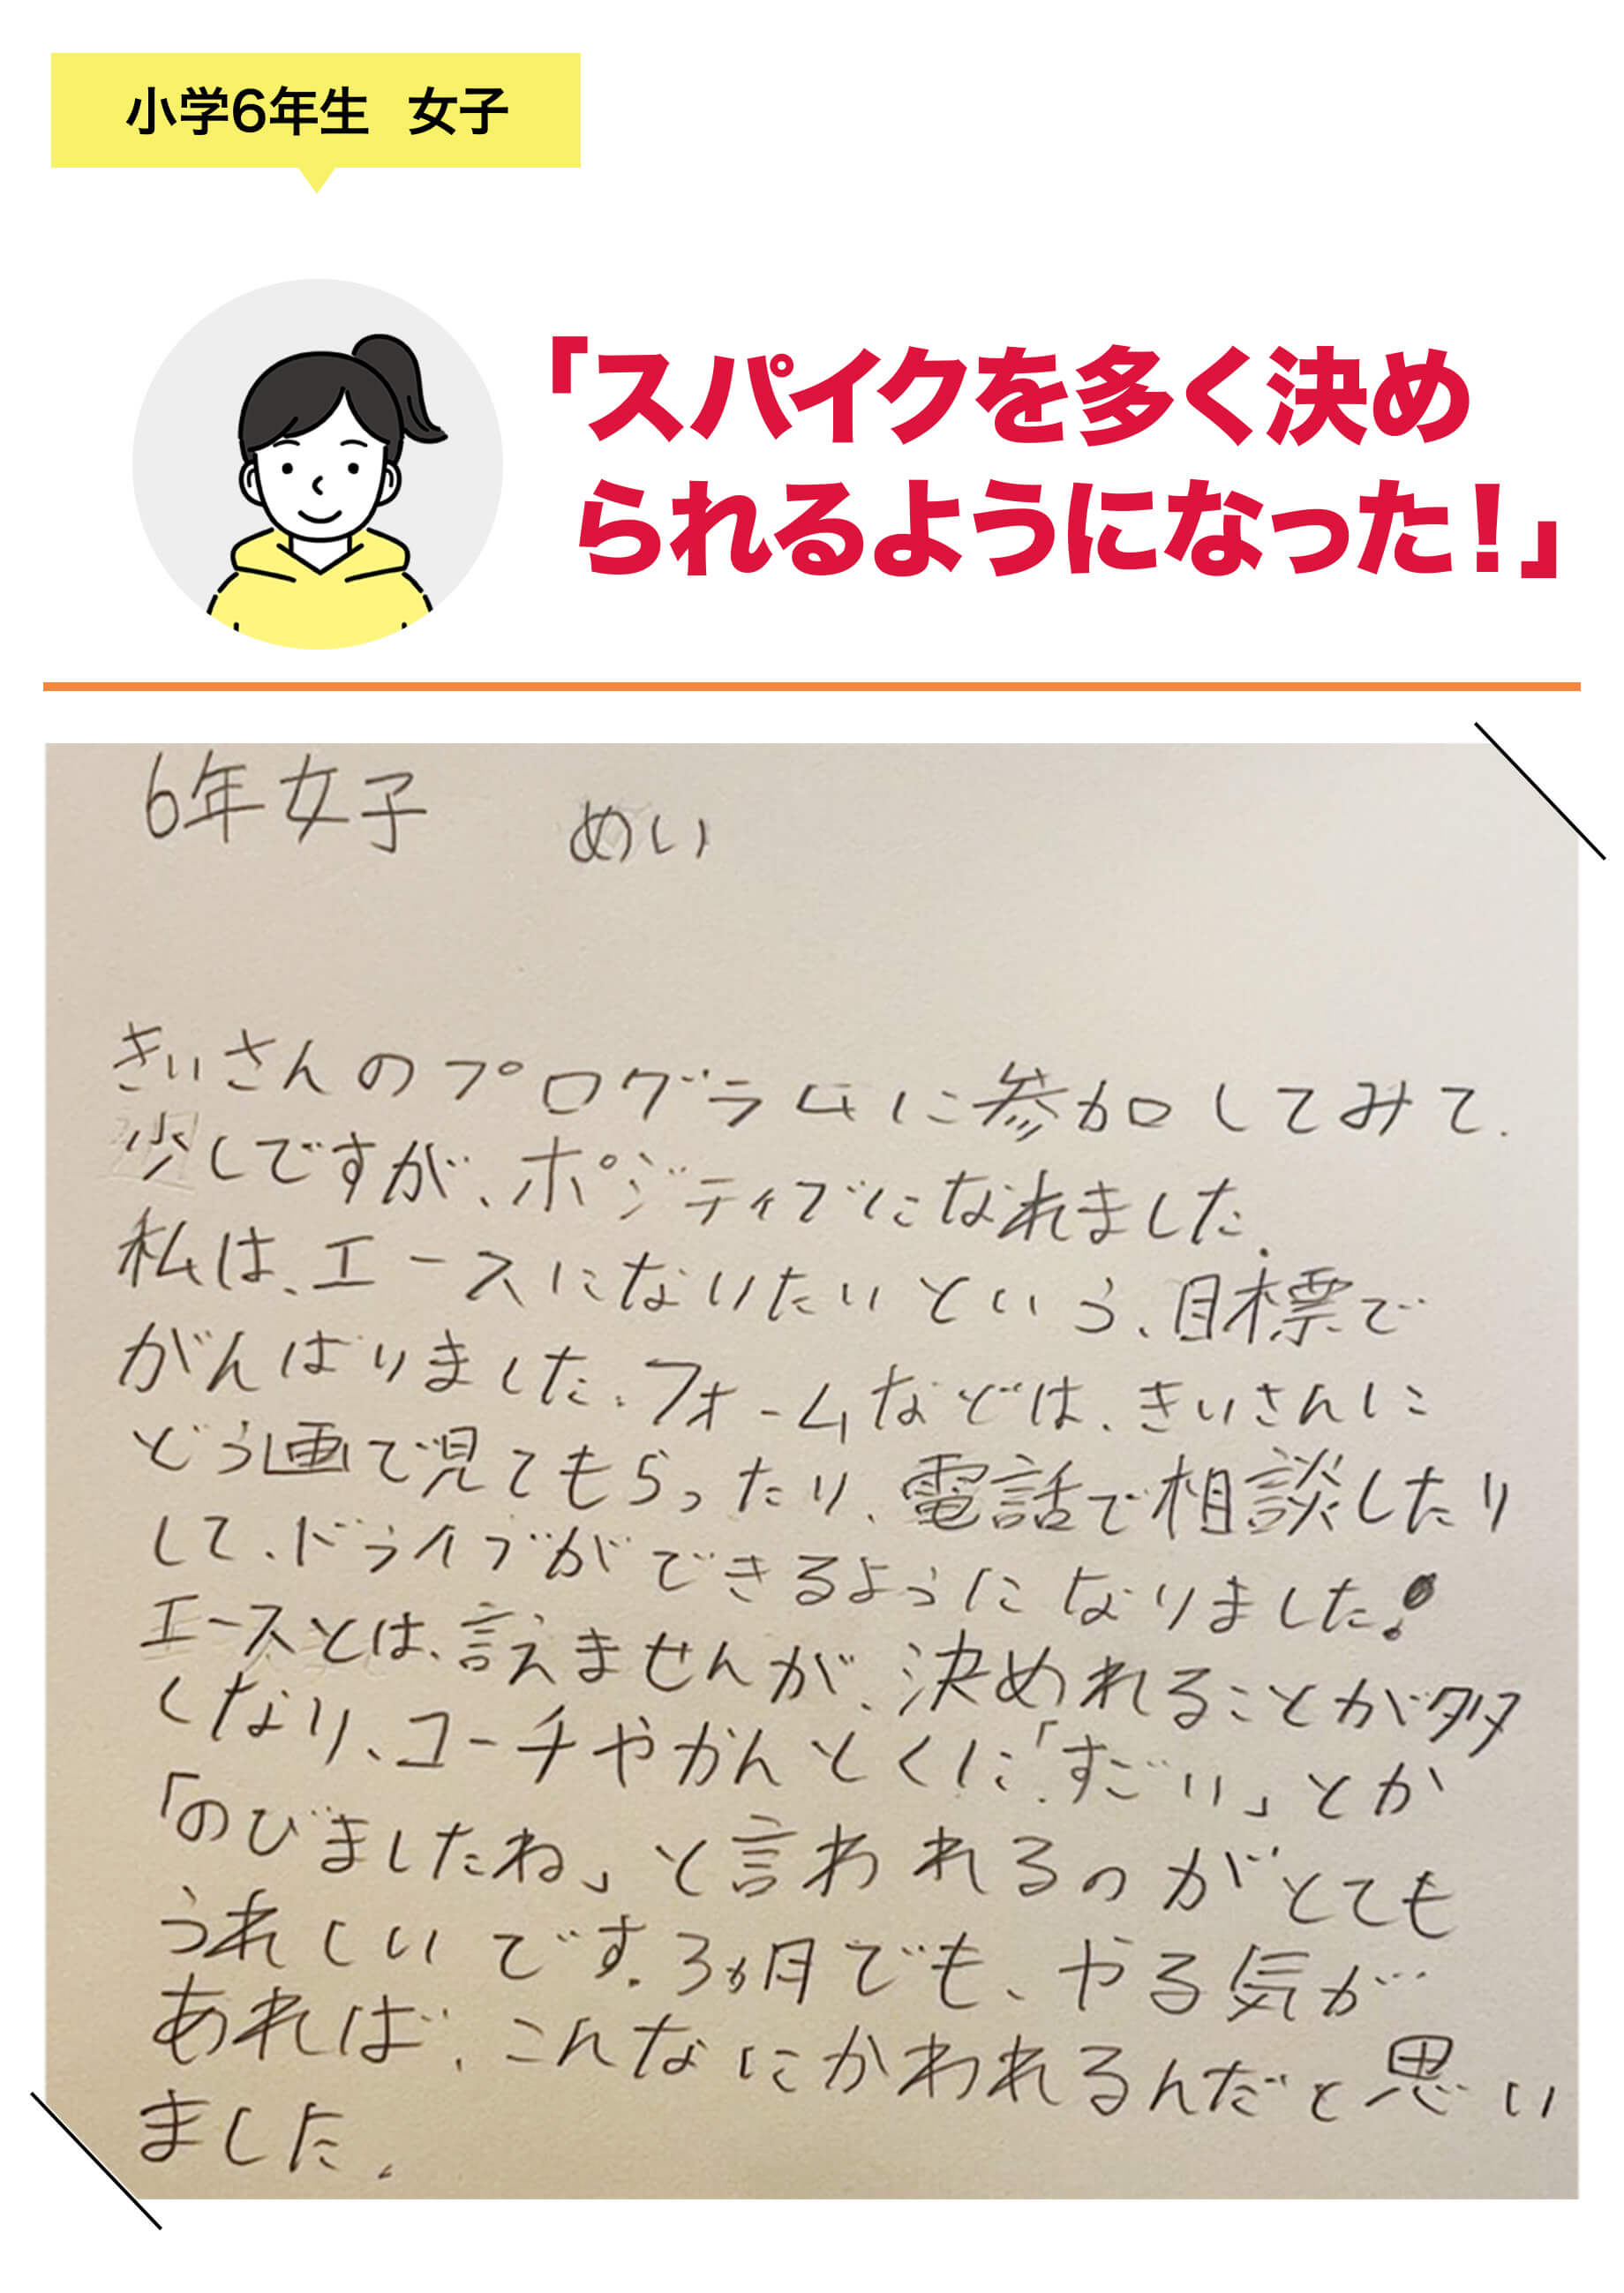 小学6年生 女子
「スパイクを多く決め
られるようになった!」
6年女子 めい
きいさんのプログラムに参加してみて.
少しですが、ポジティブになれました.
私は、エースになりたいという、目標で
がんばりました.フォームなどは、きいさんに
どう画で見てもらったり、電話で相談したり
して、ドライブができるようになりました!
エースとは、言えませんが、決めれることが多
くなり、コーチやかんとくに「すごい」とか
「のびましたね」と言われるのがとても
うれしいです.3ヵ月でも、やる気が
あれば、こんなにかわれるんだと思い
ました.